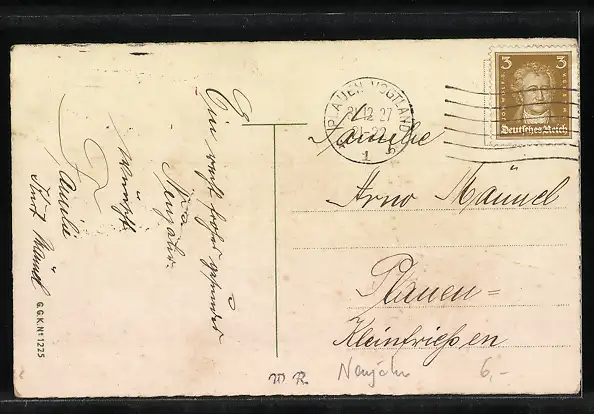 Ein recht frohes gesundes
Neujahr
wünscht
Familie
Kurt Mänel
G.G.K. Nº 1225
PLAUEN VOGTLAND
31.12.27
21-22
1 b
3 3
Deutsches Reich
Familie
Arno Mänvel
Plauen=
Kleinfriesen
Neujahr
6,-